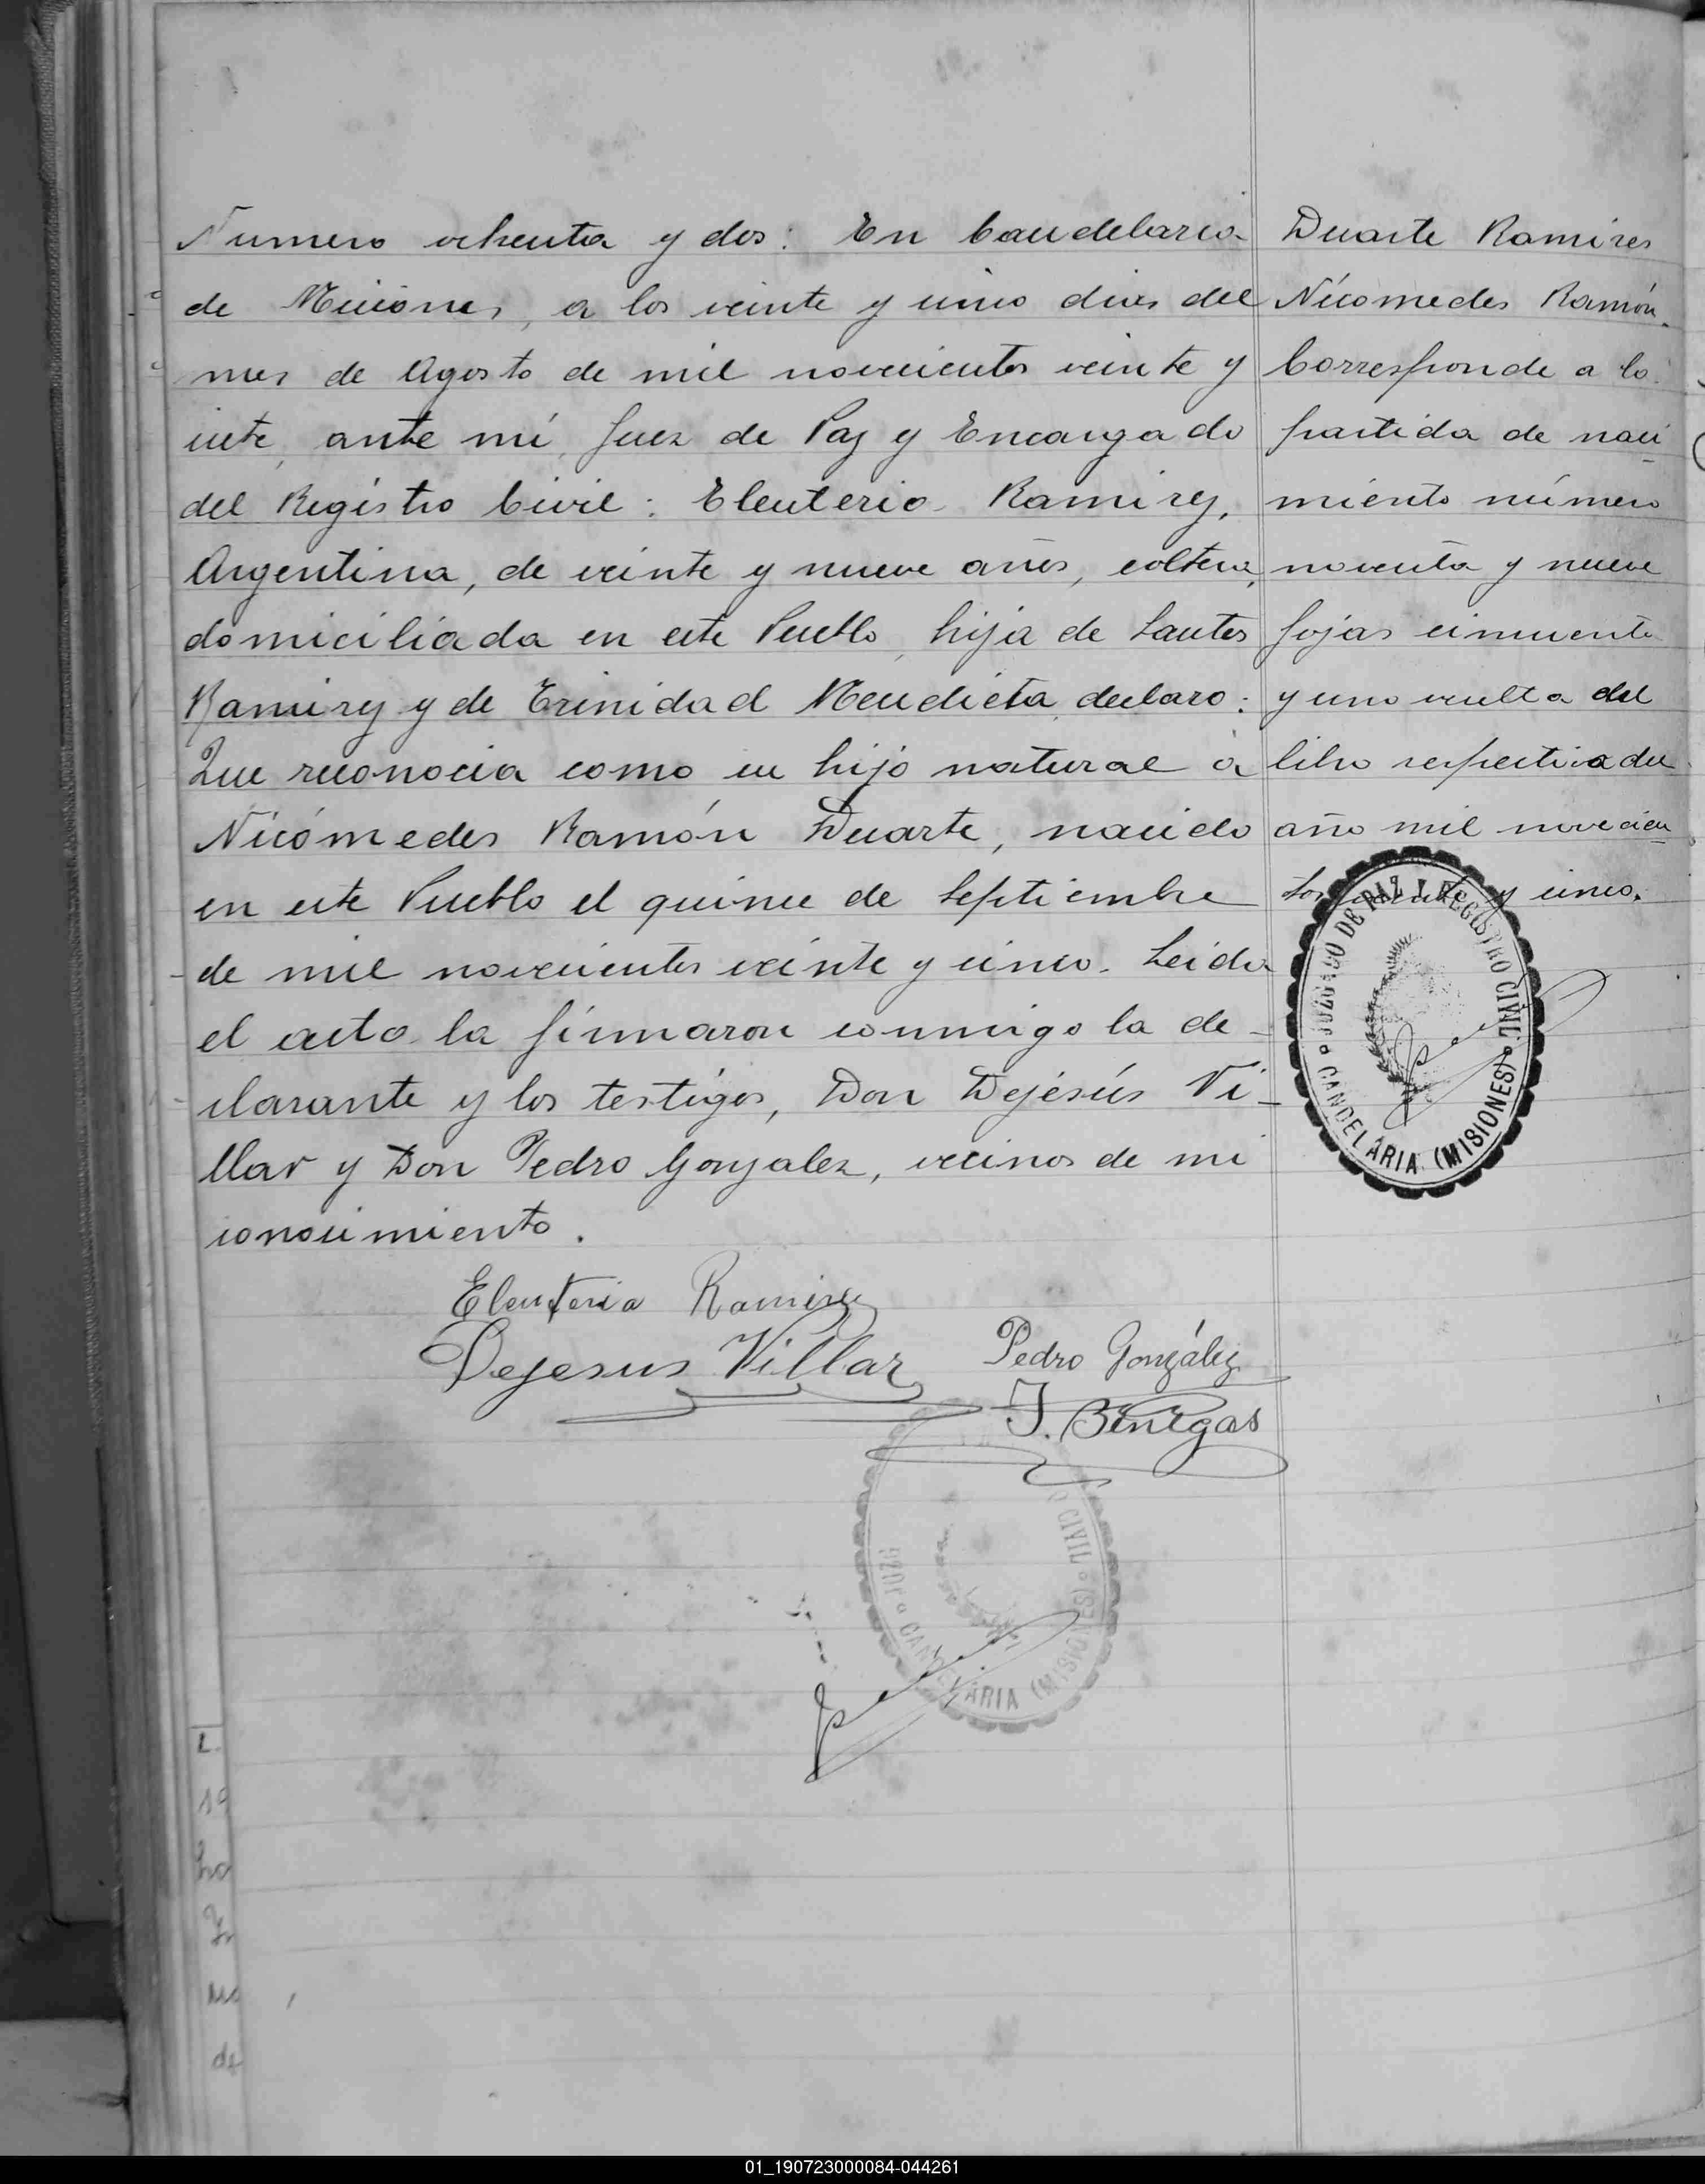 Numero ochenta y dos: En Candelaria
de Misiones, a los veinte y cinco dias del
mes de Agosto de mil novecientos veinte y
siete, ante mí, Juez de Paz y Encargado
del Registro Civil: Eleuteria Ramirez,
Argentina, de veinte y nueve años, soltera,
domiciliada en este Pueblo, hija de Santos
Ramirez y de Trinidad Mendieta, declaro:
Que reconocia como su hijo natural á
Nicómedes Ramón Duarte, nacido
en este Pueblo el quince de Septiembre
de mil novecientos veinte y cinco. Leida
el acta la firmaron conmigo la de-
clarante y los testigos, Don Dejésús Vi-
llar y Don Pedro Gonzalez, vecinos de mi
conocimiento.
Duarte Ramires
Nícomedes Ramón.
Corresponde a la
partida de naci
miento número
noventa y nueve
fojas cincuenta
y uno vuelta del
libro respectivo del
año mil novecien
tos veinte y cinco.
JUZGADO DE PAZ Y REGISTRO CIVIL
CANDELARIA (MISIONES)
Eleuteria Ramirez
Dejesus Villar
Pedro González
J. Benegas
JUZG
O CIVIL
CANDELARIA (MISIONES)
L.
19
ho
de
01_190723000084-044261